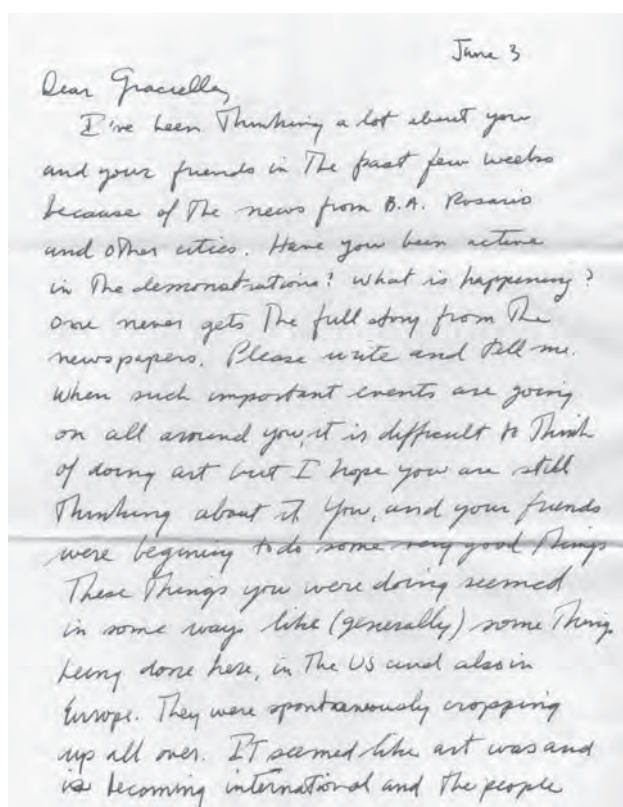 June 3
Dear Graciella,
I've been Thinking a lot about you
and your friends in The past few weeks
because of The news from B.A. Rosario
and other cities. Have you been active
in The demonstrations? What is happening?
One never gets The full story from The
newspapers. Please write and tell me.
When such important events are going
on all around you, it is difficult to Think
of doing art but I hope you are still
Thinking about it. You, and your friends
were begining to do some very good Things
These Things you were doing seemed
in some ways like (generally) some Things
being done here, in The US and also in
Europe. They were spontaneously cropping
up all over. IT seemed like art was and
is becoming international and The people